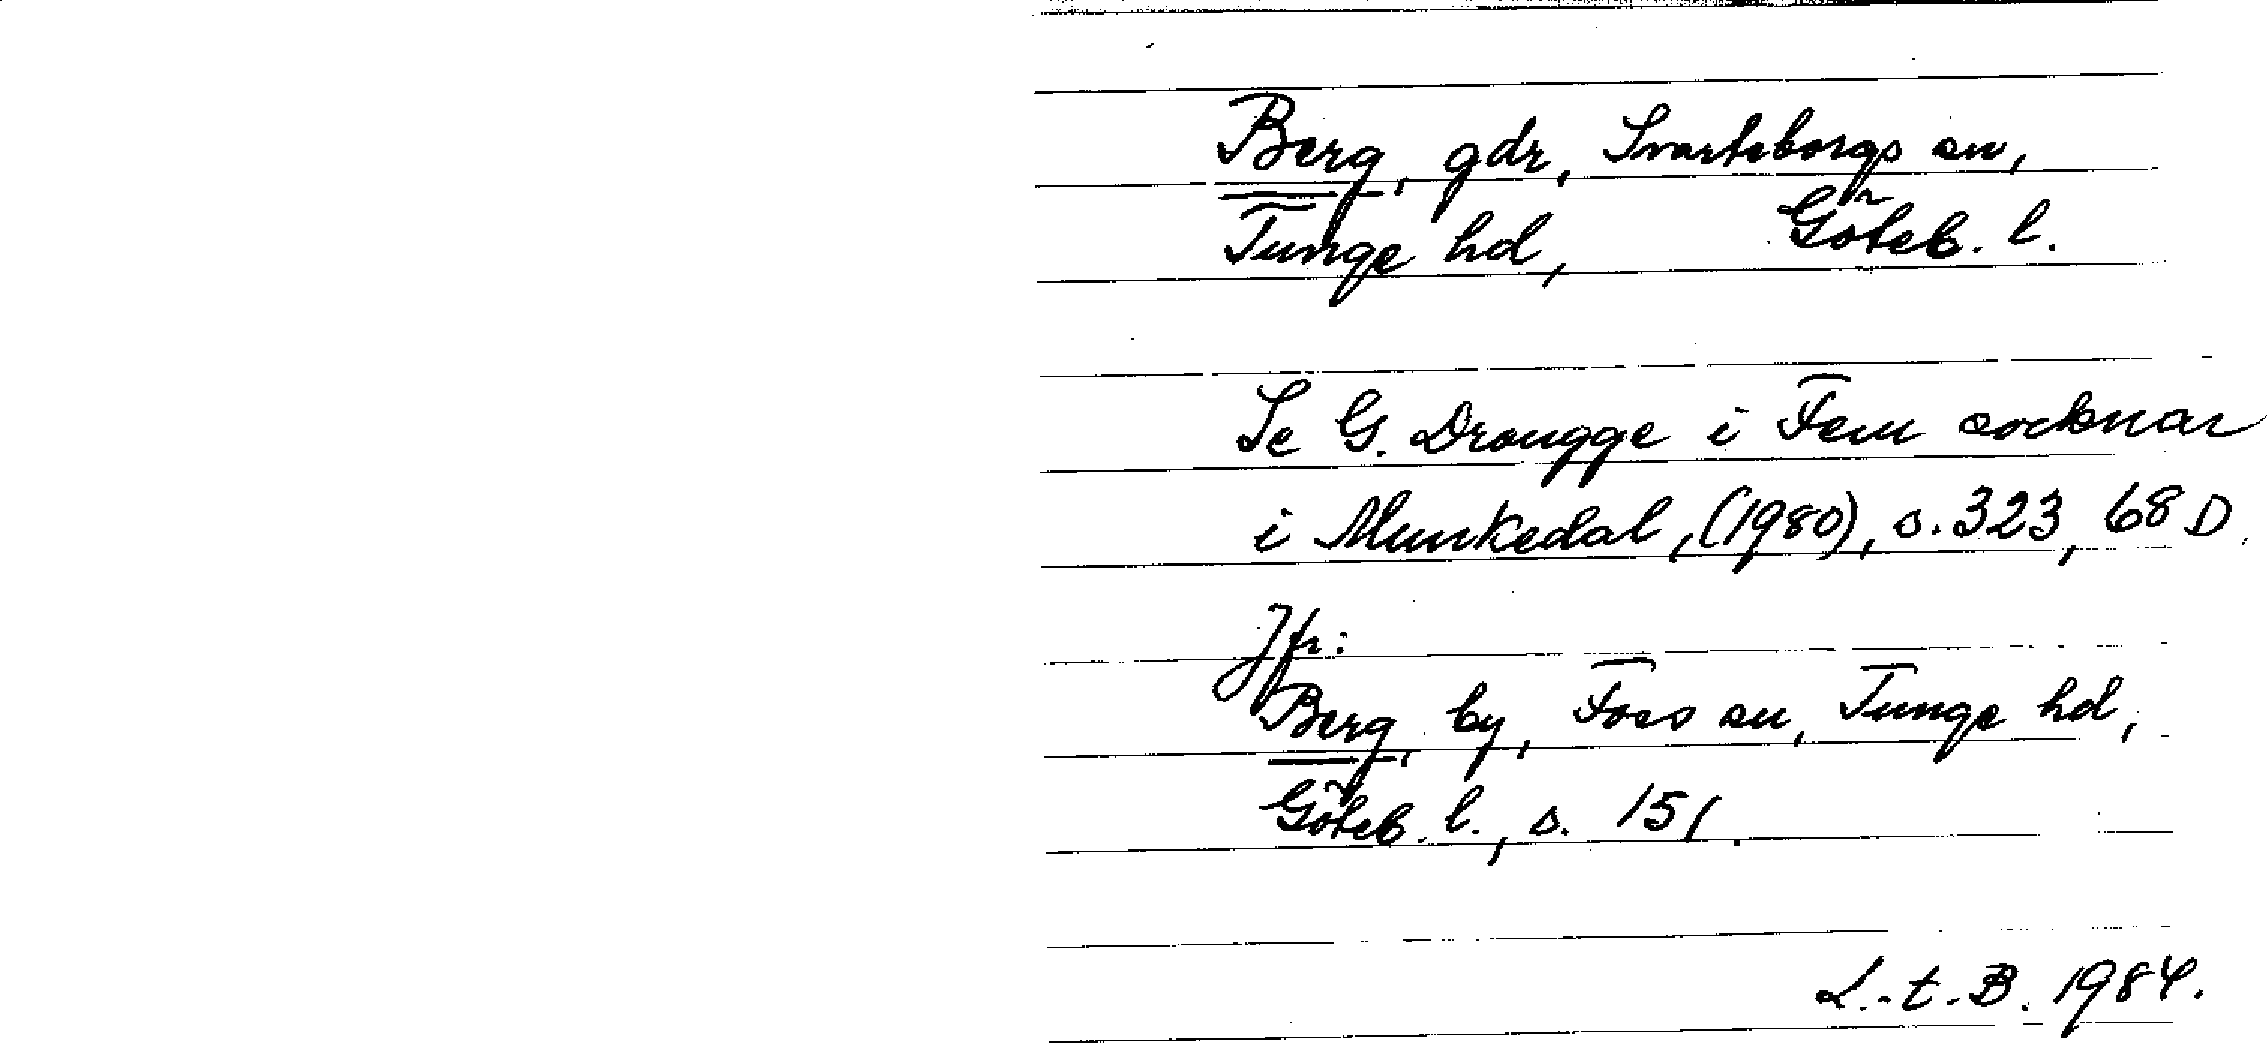 Berg, gdr, Svarteborgs sn,
Tunge hd, Göteb. l.
Se G. Drougge i Fem socknar
i Munkedal, (1980), s. 323, 68 D.
Jfr:
Berg, by, Foss sn, Tunge hd,
Göteb. l., s. 151.
L.-t. B. 1984.